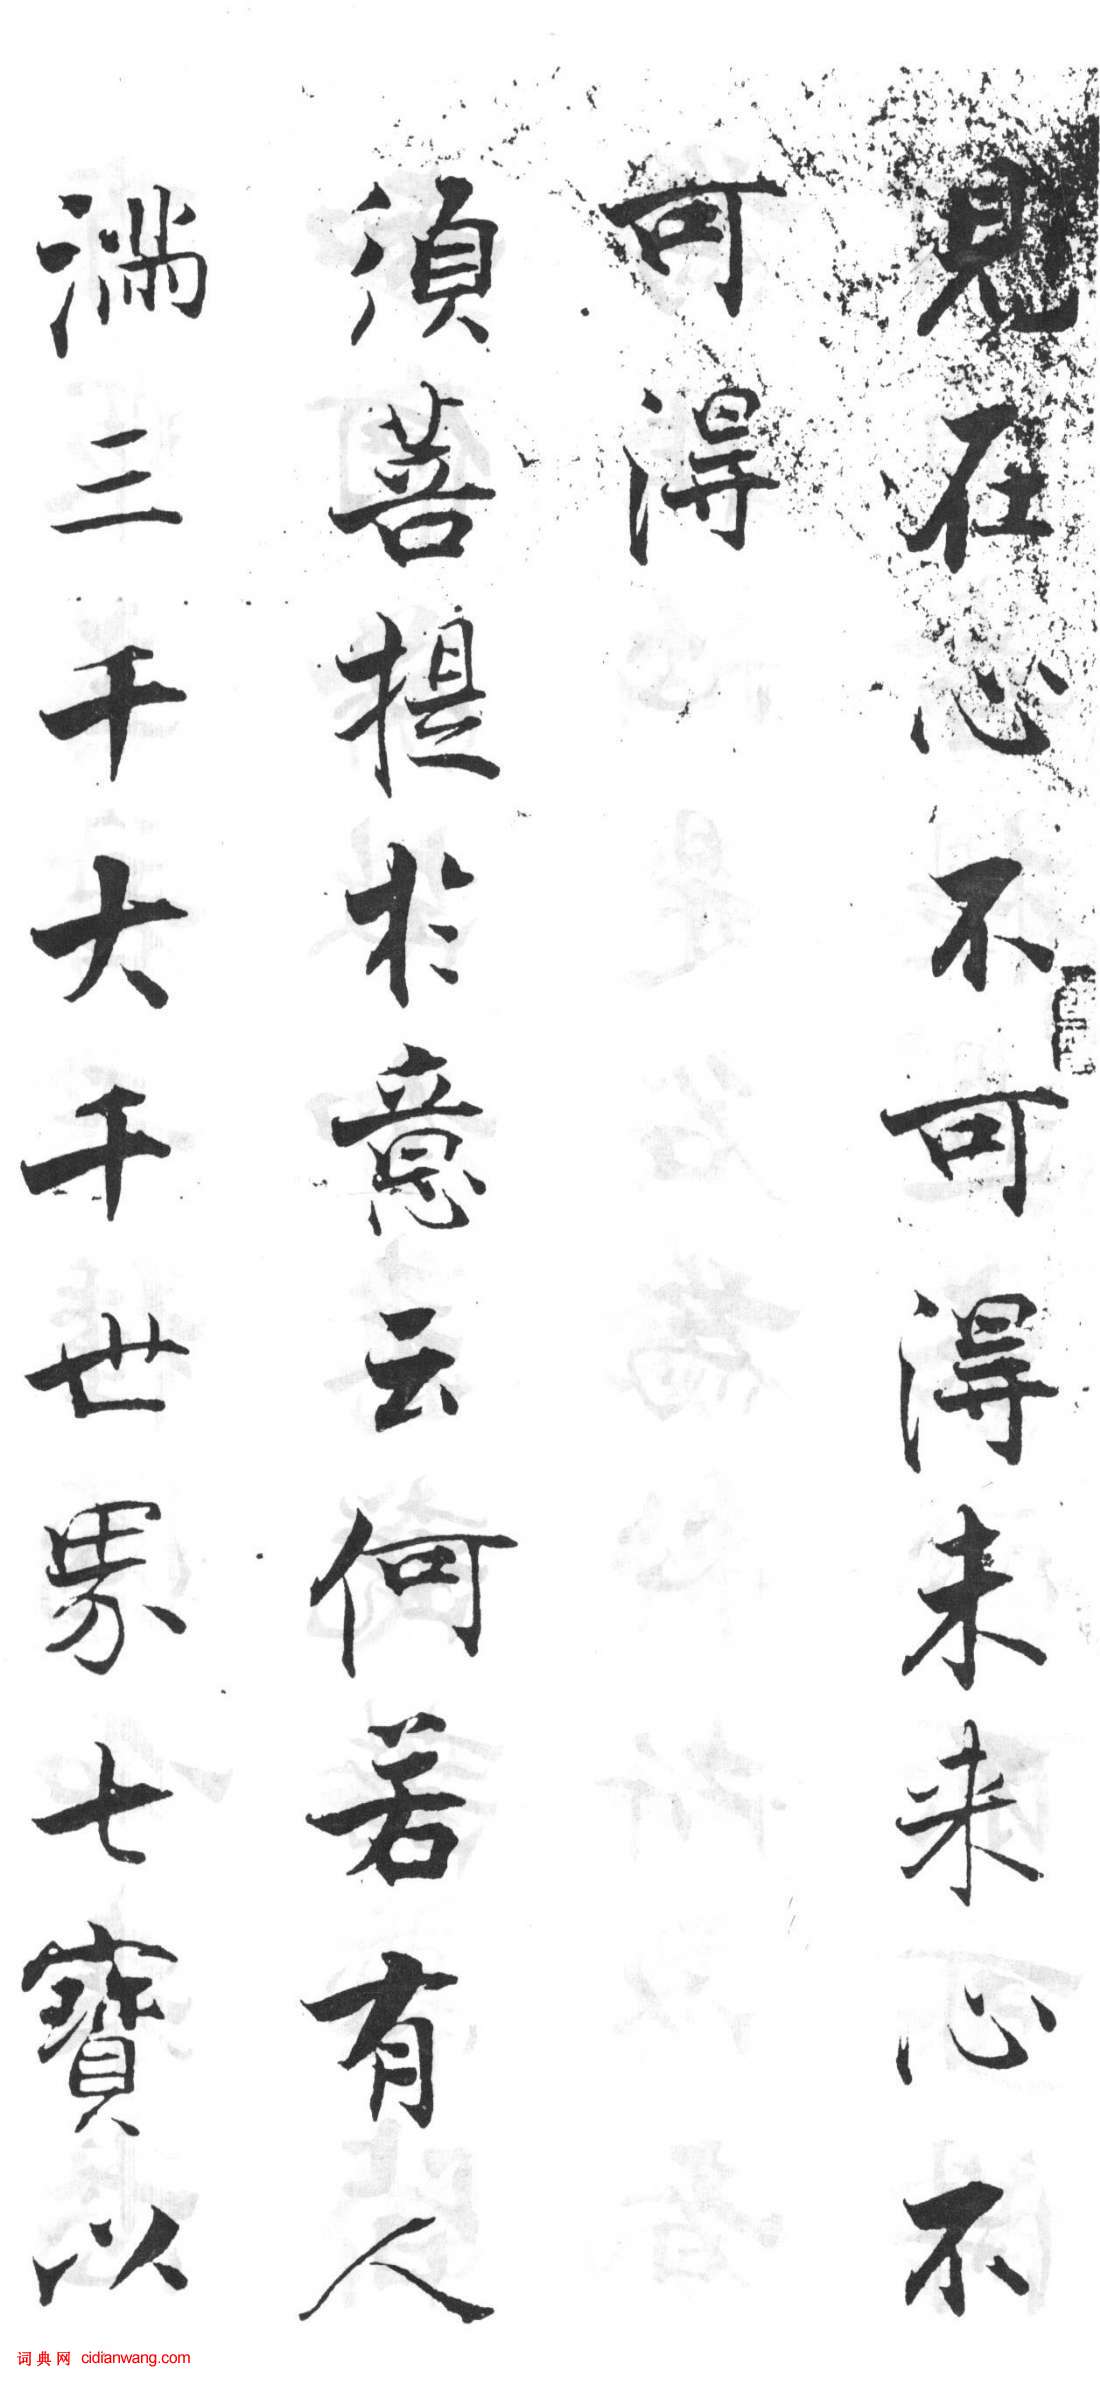 見在心不可得未来心不
可得
須菩提於意云何若有人
満三千大千世界七寶以
词典网 cidianwang.com